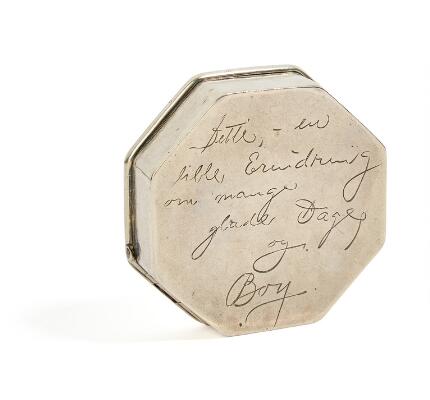 Tette, - en
lille, Erindring
om mange
glade Dage,
og,
Boy.